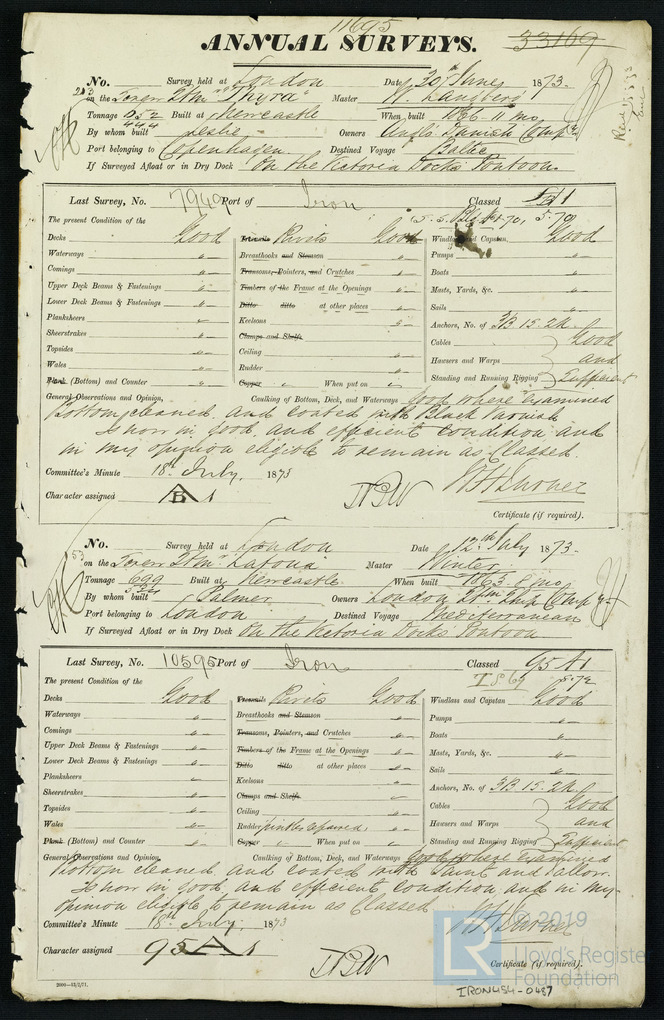 11695
ANNUAL SURVEYS.
33169
No. Survey held at London Date 20th June 1873.
on the Screw Stmr "Thyra" Master W. Langberg
Tonnage 952 Built at Newcastle When built 1866-11 mo
By whom built Leslie Owners Anglo Danish Compy
Port belonging to Copenhagen Destined Voyage Baltic
If Surveyed Afloat or in Dry Dock On the Victoria Docks Pontoon.
Last Survey, No. 7949 Port of Iron Classed
The present Condition of the
Decks Good Rivits Good Windlass and Capstan, Good
Waterways " Breasthooks and Stemson " Pumps "
Comings " Transoms, Pointers, and Crutches " Boats "
Upper Deck Beams & Fastenings " Timbers of the Frame at the Openings " Masts, Yards, &c. "
Lower Deck Beams & Fastenings " Ditto ditto at other places " Sails "
Planksheers " Keelsons " Anchors, No. of 3B. 15. 2K.
Sheerstrakes " Clamps and Shelfs Cables Good
Topsides " Ceiling " Hawsers and Warps and
Wales " Rudder " Standing and Running Rigging Sufficient
Plank (Bottom) and Counter " Copper " When put on "
General Observations and Opinion, Caulking of Bottom, Deck, and Waterways Good where examined
Bottom cleaned and coated with Black Varnish
Is now in good and efficient condition and
in my opinion eligible to remain as Classed.
Committee's Minute 18th July, 1873
Character assigned B 1
Certificate (if required).
No. Survey held at London Date 12th July 1873.
on the Screw Stmr "Latona" Master Winter
Tonnage 699 Built at Newcastle When built 1863. 8 mo
By whom built Palmer Owners London Stm Ship Compy
Port belonging to London Destined Voyage Mediterranean
If Surveyed Afloat or in Dry Dock On the Victoria Docks Pontoon
Last Survey, No. 10595 Port of Iron Classed 95 A1
The present Condition of the
Decks Good Rivits Good Windlass and Capstan Good
Waterways " Breasthooks and Stemson " Pumps "
Comings " Transoms, Pointers, and Crutches " Boats "
Upper Deck Beams & Fastenings " Timbers of the Frame at the Openings " Masts, Yards, &c. "
Lower Deck Beams & Fastenings " Ditto ditto at other places " Sails "
Planksheers " Keelsons " Anchors, No. of 3B. 15. 2K.
Sheerstrakes " Clamps and Shelfs " Cables Good
Topsides " Ceiling " Hawsers and Warps and
Wales " Rudder repaired Standing and Running Rigging Sufficient
Plank (Bottom) and Counter " Copper " When put on "
General Observations and Opinion, Caulking of Bottom, Deck, and Waterways Good where examined
Bottom cleaned and coated with Paint and Tallow.
Is now in good and efficient condition and in my
opinion eligible to remain as Classed
Committee's Minute 18th July, 1873
Character assigned 95 A 1
Certificate (if required).
2000—13/2/71.
LR © 2019
Lloyd's Register
Foundation
IRON484-0487